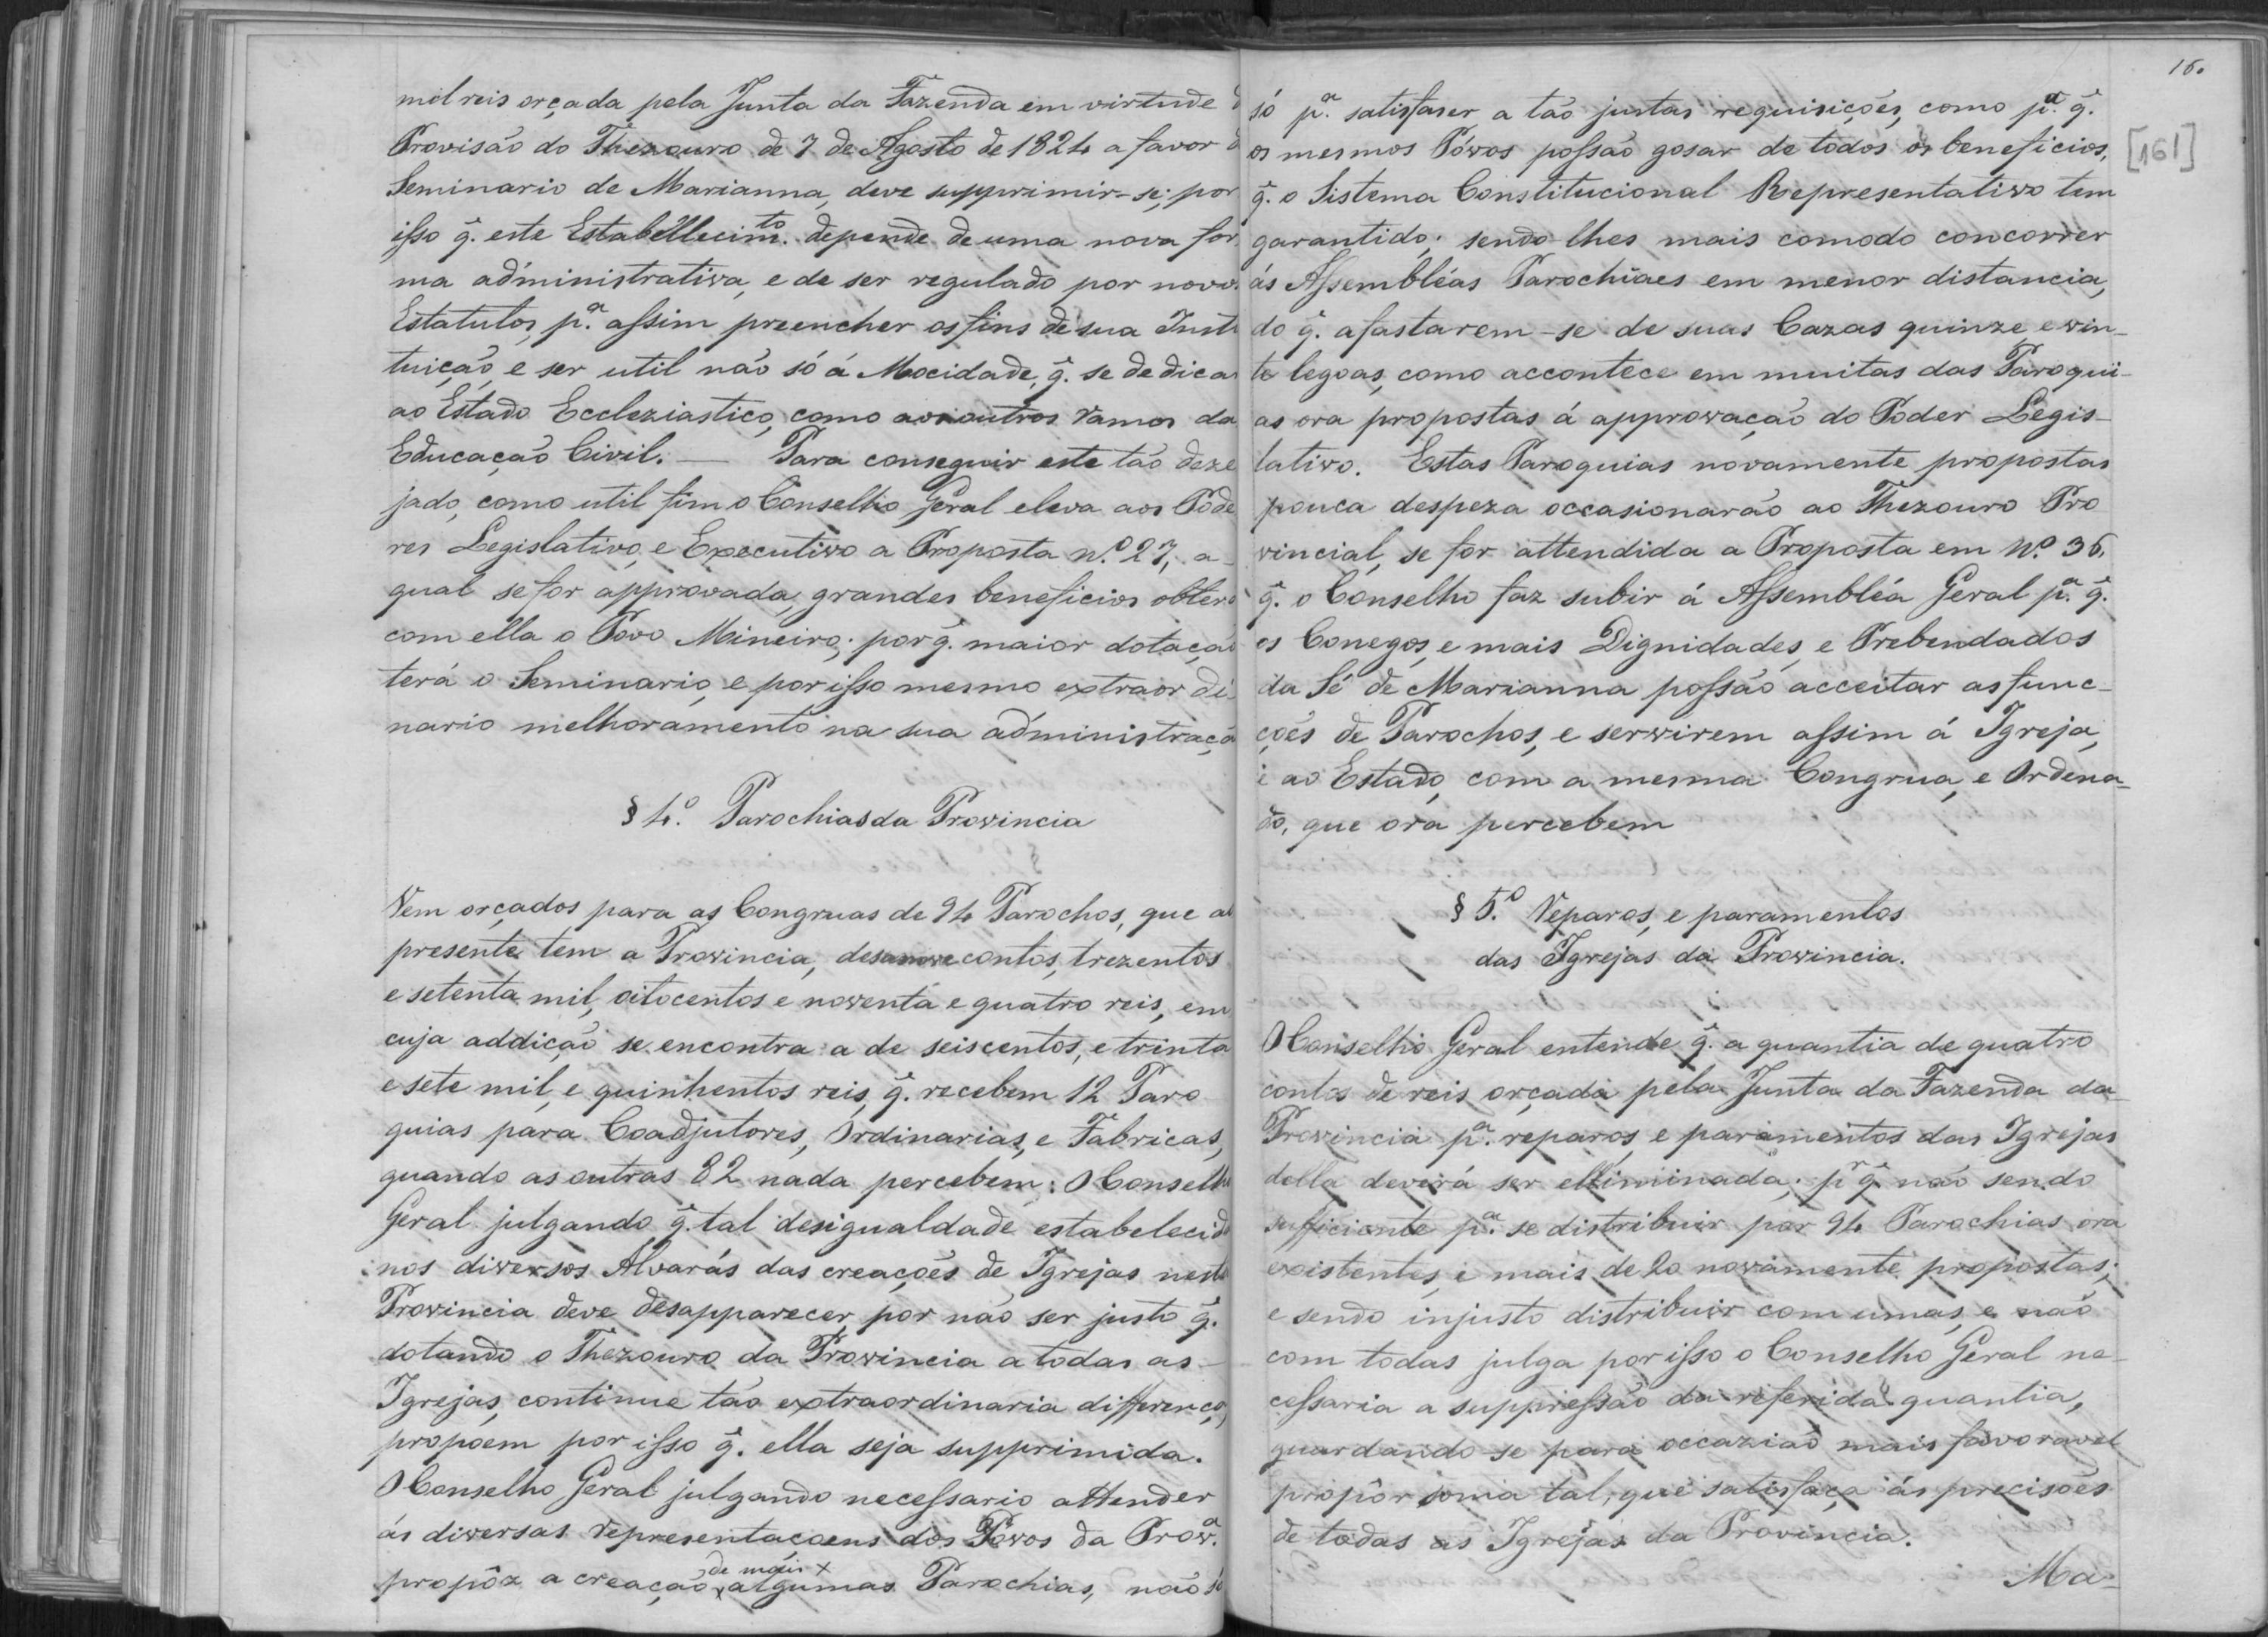 mil reis orçada pela Junta da Fazenda em virtude d
Provisão do Thezouro de 7 de Agosto de 1824 a favor d
Seminario de Marianna, deve supprimir-se; por
isso q̃. este Estabellecim.to depende de uma nova for
ma administrativa, e de ser regulado por novos
Estatutos, p.a assim preencher os fins de sua Insti
tuição, e ser util não só á Mocidade, q̃. se dedica
ao Estado Ecclesiastico, como aos outros ramos da
Educação Civil. — Para conseguir este tão deze
jado, como util fim o Conselho Geral eleva aos Pode
res Legislativo, e Executivo a Proposta n.o 27, a
qual se for approvada, grandes beneficios obterá
com ella o Povo Mineiro; por q̃. maior dotação
terá o Seminario, e por isso mesmo extraordi
nario melhoramento na sua administraçã
§ 4.o Parochias da Provincia
Vem orçados para as Congruas de 94 Parochos, que al
presente tem a Provincia, desanove contos, trezentos
e setenta mil, oitocentos e noventa e quatro reis, em
cuja addição se encontra a de seiscentos, e trinta
e sete mil, e quinhentos reis, q̃. recebem 12 Paro
quias para Coadjutores, Ordinarias, e Fabricas,
quando as outras 82 nada percebem: O Conselho
Geral julgando q̃. tal desigualdade estabelecida
nos diversos Alvarás das creações de Igrejas nesta
Provincia deve desapparecer, por não ser justo q̃.
dotando o Thezouro da Provincia a todas as
Igrejas, continue tão extraordinaria differença,
propoem por isso q̃. ella seja supprimida.
O Conselho Geral julgando necessario attender
ás diversas representaçoens dos Póvos da Prov.a
de mais +
propôz a creação algumas Parochias, não só
16.
[161]
só p.a satisfaser a tão justas requisições, como p.a q̃.
os mesmos Póvos possão gosar de todos os beneficios,
q̃. o Sistema Constitucional Representativo tem
garantido; sendo-lhes mais comodo concorrer
ás Assembléas Parochiaes em menor distancia,
do q̃. afastarem-se de suas Cazas quinze e vin-
te legoas, como accontece em muitas das Paroqui-
as ora propostas á approvação do Poder Legis-
lativo. Estas Paroquias novamente propostas
pouca despeza occasionarão ao Thezouro Pro
vincial, se for attendida a Proposta em N.o 36.
q̃. o Conselho faz subir á Assembléa Geral p.a q̃.
os Conegos, e mais Dignidades, e Prebendados
da Sé de Marianna possão acceitar as func-
ções de Parochos, e servirem assim á Igreja,
e ao Estado, com a mesma Congrua, e Ordena-
do, que ora percebem
§ 5.o Reparos, e paramentos
das Igrejas da Provincia.
O Conselho Geral entende q̃. a quantia de quatro
contos de reis orçada pela Junta da Fazenda da
Provincia p.a reparos, e paramentos das Igrejas
della deverá ser elliminada; p.r q̃. não sendo
sufficiente p.a se distribuir por 94 Parochias ora
existentes, e mais de 20 novamente propostas;
e sendo injusto distribuir com umas, e não
com todas julga por isso o Conselho Geral ne-
cessaria a suppressão da referida quantia,
guardando-se para occazião mais favoravel
propôr soma tal, que satisfaça ás precisões
de todas as Igrejas da Provincia.
Ma-